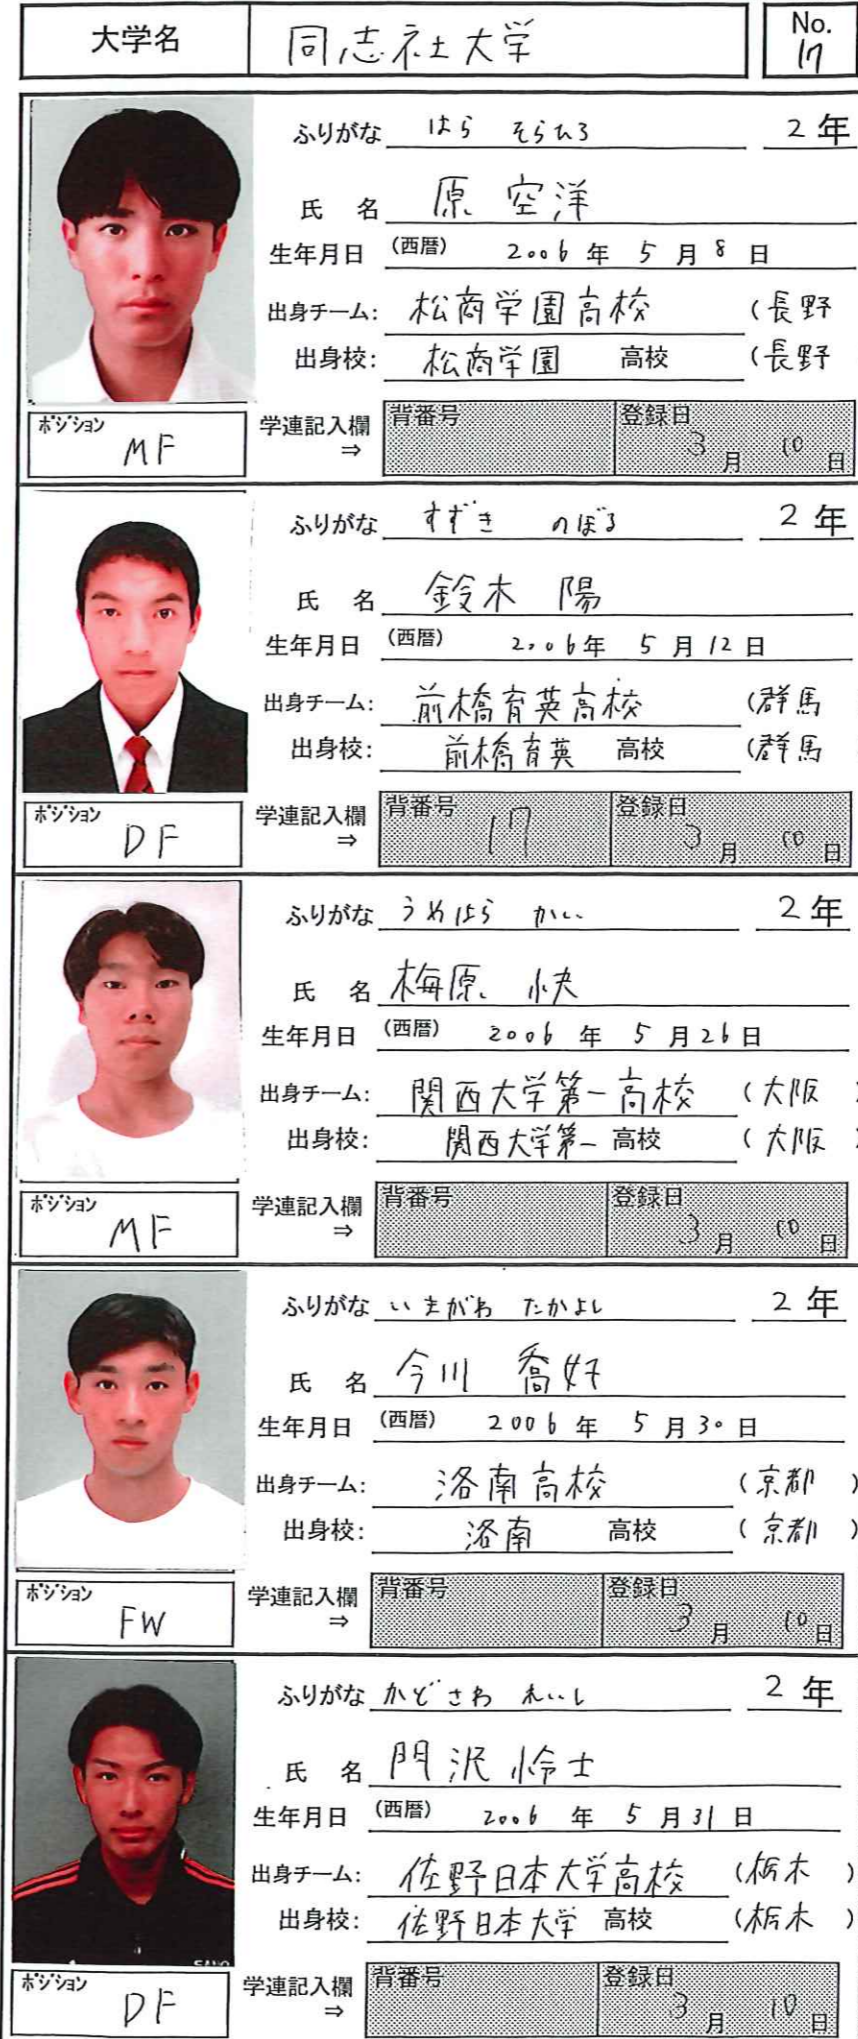 大学名 同志社大学 No. 17
ふりがな はら そらひろ 2年
氏 名 原 空洋
生年月日 (西暦) 2006年 5月8日
出身チーム: 松商学園高校 (長野
出身校: 松商学園 高校 (長野
ポジション MF 学連記入欄⇒ 背番号 登録日 3月10日
ふりがな すずき のぼる 2年
氏 名 鈴木 陽
生年月日 (西暦) 2006年 5月12日
出身チーム: 前橋育英高校 (群馬
出身校: 前橋育英 高校 (群馬
ポジション DF 学連記入欄⇒ 背番号 17 登録日 3月10日
ふりがな うめはら かい 2年
氏 名 梅原 快
生年月日 (西暦) 2006年 5月26日
出身チーム: 関西大学第一高校 (大阪 )
出身校: 関西大学第一 高校 (大阪 )
ポジション MF 学連記入欄⇒ 背番号 登録日 3月10日
ふりがな いまがわ たかよし 2年
氏 名 今川 喬好
生年月日 (西暦) 2006年 5月30日
出身チーム: 洛南高校 (京都 )
出身校: 洛南 高校 (京都 )
ポジション FW 学連記入欄⇒ 背番号 登録日 3月10日
ふりがな かどさわ れいし 2年
氏 名 門沢怜士
生年月日 (西暦) 2006年 5月31日
出身チーム: 佐野日本大学高校 (栃木 )
出身校: 佐野日本大学 高校 (栃木 )
ポジション DF 学連記入欄⇒ 背番号 登録日 3月10日